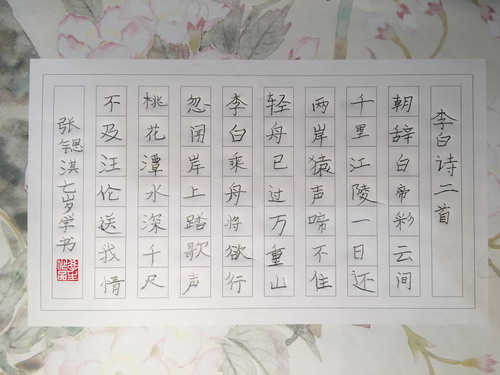 李白诗二首
朝辞白帝彩云间
千里江陵一日还
两岸猿声啼不住
轻舟已过万重山
李白乘舟将欲行
忽闻岸上踏歌声
桃花潭水深千尺
不及汪伦送我情
张锶淇七岁学书